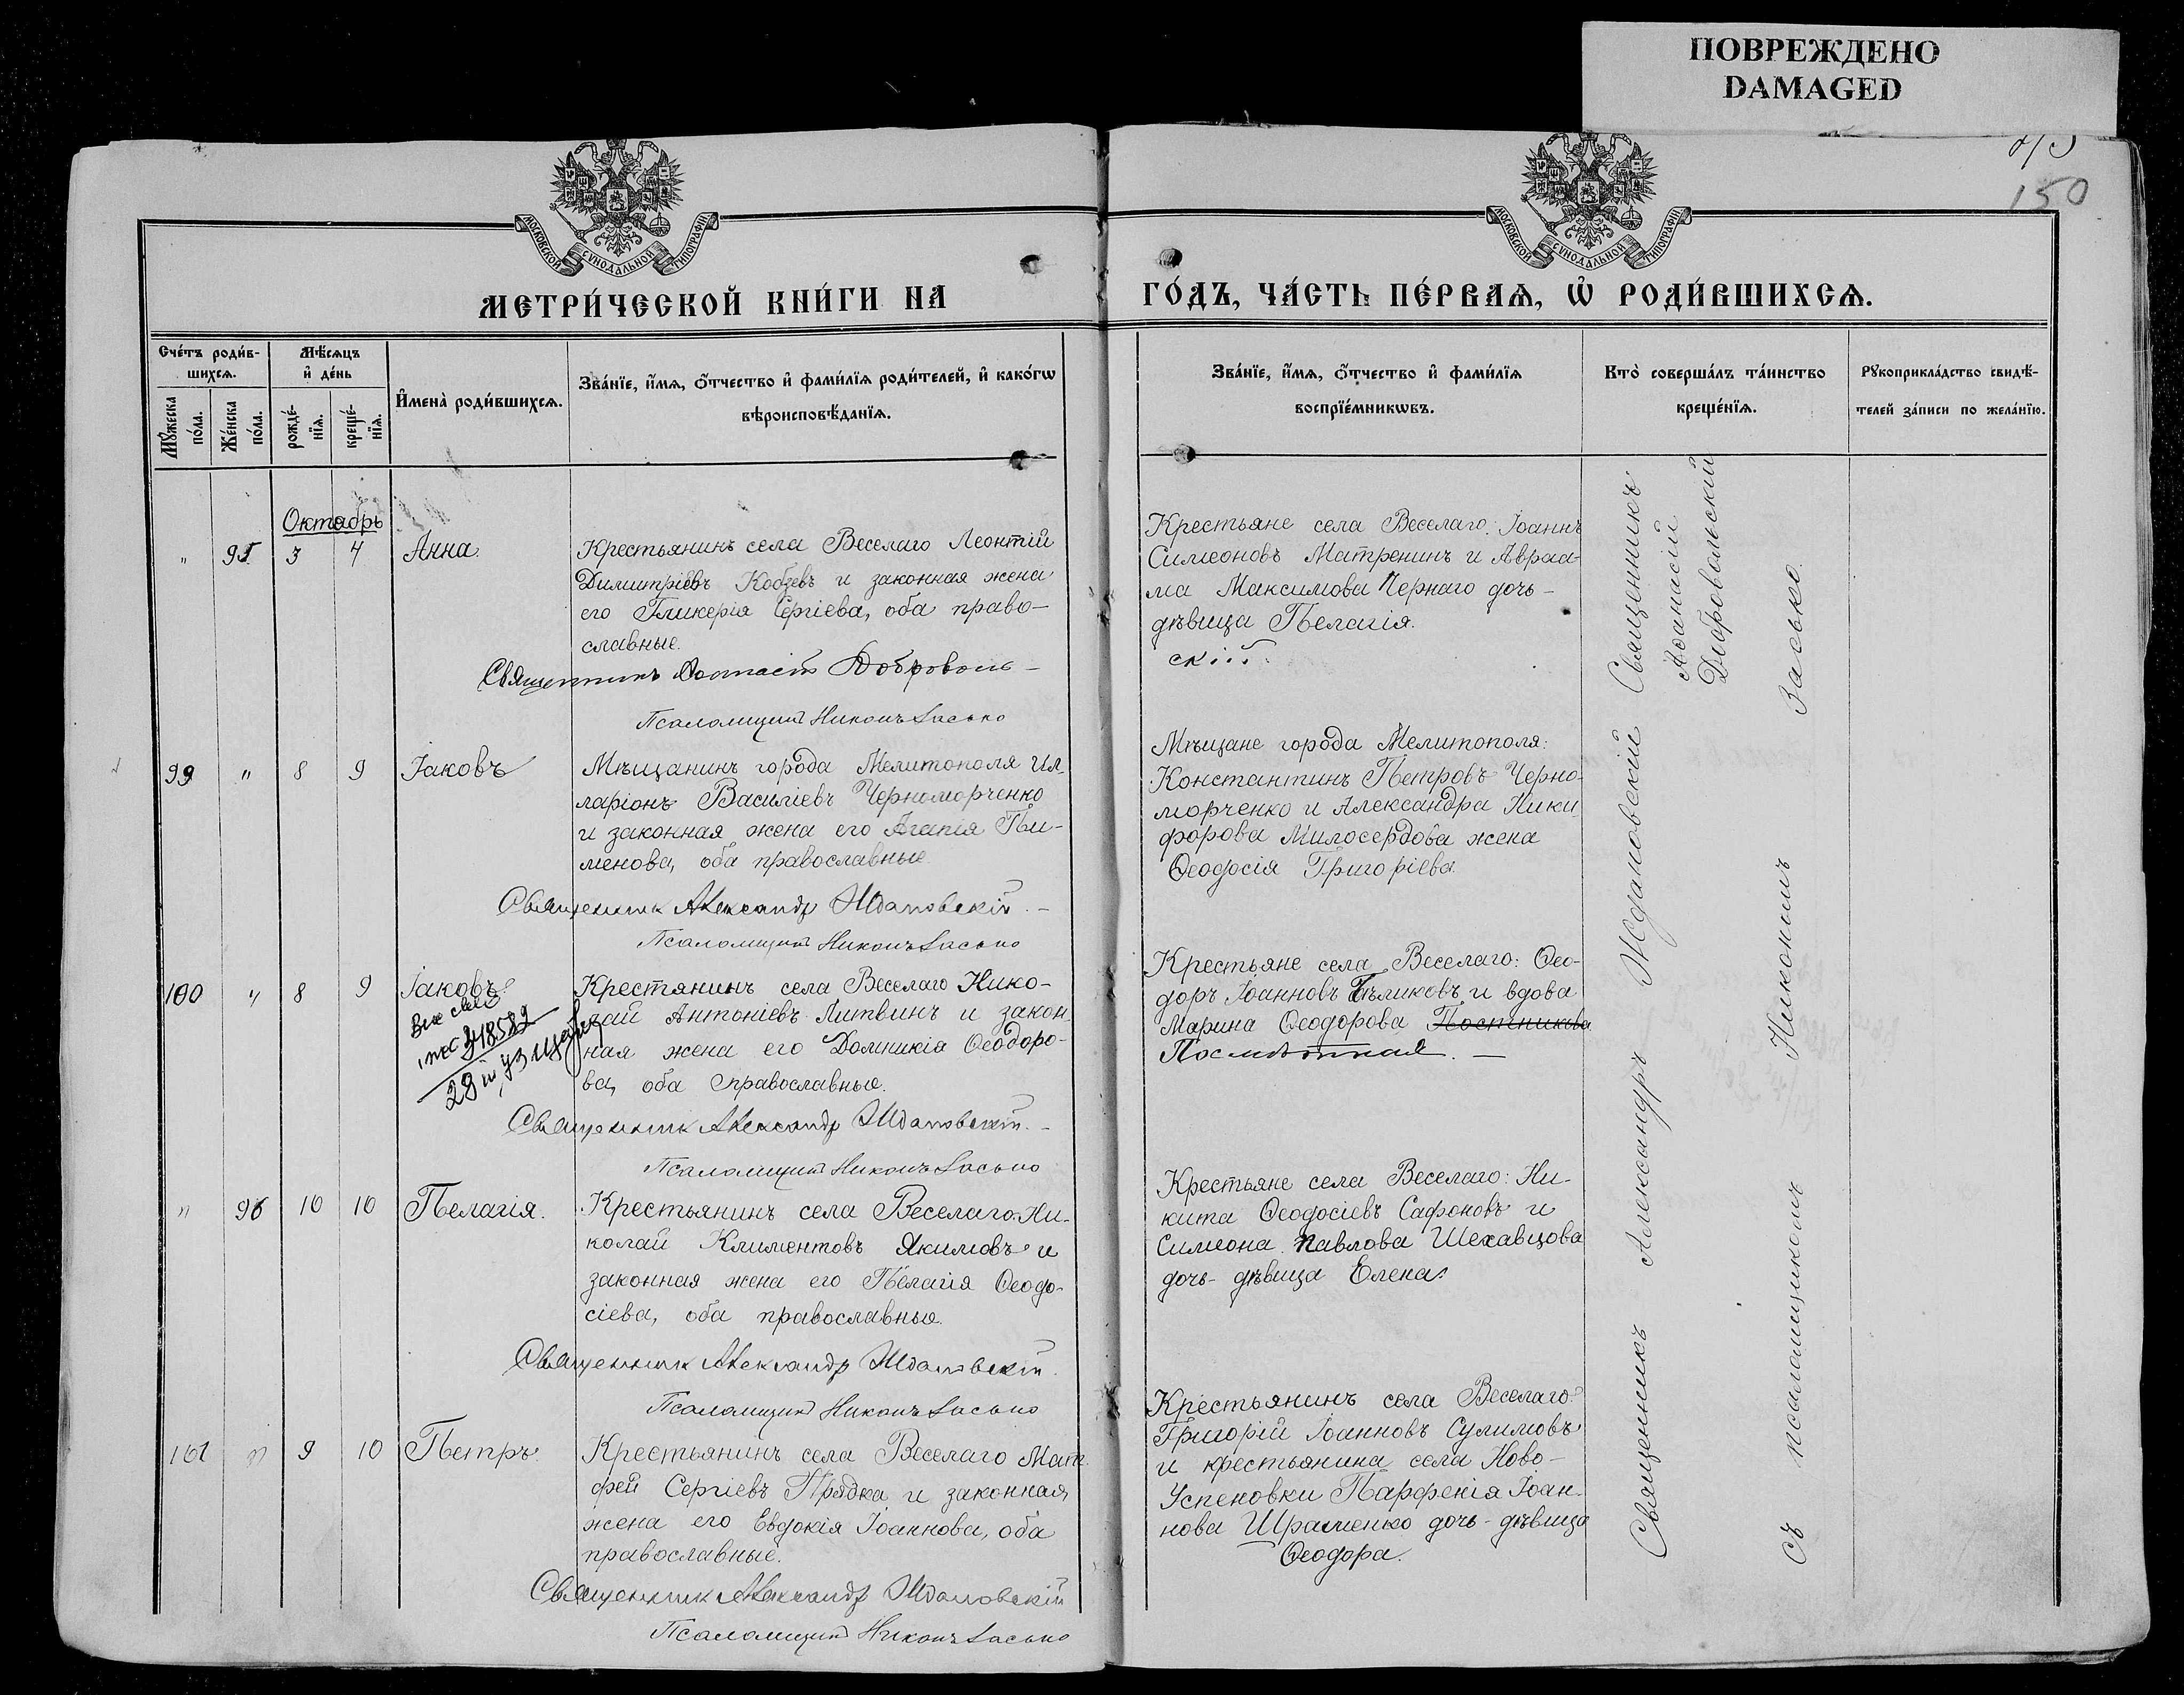 ПОВРЕЖДЕНО
DAMAGED
150
МОСКОВСКОЙ СѴНОДАЛЬНОЙ ТИПОГРАФІИ
МОСКОВСКОЙ СѴНОДАЛЬНОЙ ТИПОГРАФІИ
МЕТРИ́ЧЕСКОЙ КНИ́ГИ НА
ГО́ДЪ, ЧА́СТЬ ПЕ́РВАѦ, Ѡ҆ РОДИ́ВШИХСѦ.
Сче́тъ роди́в-
шихсѧ.
Мꙋ́жеска
по́ла.
Же́нска
по́ла.
Мѣ́сѧцъ
и҆ де́нь
рожде́-
нїѧ.
креще́-
нїѧ.
И҆мена̀ роди́вшихсѧ.
Зва́нїе, и҆́мѧ, ѻ҆́тчество и҆ фами́лїѧ роди́телей, и҆ како́гѡ
вѣроисповѣ́данїѧ.
Зва́нїе, и҆́мѧ, ѻ҆́тчество и҆ фами́лїѧ
воспрїе́мникѡвъ.
Кто̀ соверша́лъ та́инство
креще́нїѧ.
Рꙋкоприкла́дство свидѣ́-
телей за́писи по жела́нїю.
Октябрь
" 95 3 4 Анна.
Крестьянинъ села Веселаго Леонтій
Димитріевъ Кобзевъ и законная жена
его Гликерія Сергіева, оба право-
славные.
Священникъ Аѳанасій Доброволь-
Псаломщикъ Никонъ Засько
Крестьяне села Веселаго: Іоаннъ
Симеоновъ Матренинъ и Авраа-
ма Максимова Чернаго дочь-
дѣвица Пелагія.
скій.
99 " 8 9 Іаковъ
Мѣщанинъ города Мелитополя Ил-
ларіонъ Василіевъ Черноморченко
и законная жена его Агапія Пи-
менова, оба православные.
Священник Александр Ждановскій.-
Псаломщикъ Никонъ Засько
Мѣщане города Мелитополя:
Константинъ Петровъ Черно-
морченко и Александра Ники-
форова Милосердова жена
Ѳеодосія Григоріева.
100 " 8 9 Іаковъ
28
Крестянинъ села Веселаго Нико-
лай Антоніевъ Литвинъ и закон-
ная жена его Домникія Ѳеодоро-
ва, оба православные.
Священник Александр Ждановскій.-
Псаломщикъ Никонъ Засько
Крестьяне села Веселаго: Ѳео-
доръ Іоанновъ Бѣликовъ и вдова
Марина Ѳеодорова Постникова
" 96 10 10 Пелагія.
Крестьянинъ села Веселаго Ни-
колай Климентовъ Якимовъ и
законная жена его Пелагія Ѳеодо-
сіева, оба православные.
Священник Александр Ждановскій.
Псаломщикъ Никонъ Засько
Крестьяне села Веселаго: Ни-
кита Ѳеодосіевъ Сафоновъ и
Симеона Павлова Шехавцова
дочь-дѣвица Елена.
101 " 9 10 Петръ.
Крестьянинъ села Веселаго Мат-
фей Сергіевъ Прядка и законная
жена его Евдокія Іоаннова, оба
православные.
Священник Александр Ждановскій
Псаломщикъ Никонъ Засько
Крестьянинъ села Веселаго
Григорій Іоанновъ Сулимовъ
и крестьянина села Ново-
Успеновки Парфенія Іоан-
нова Шраменко дочь-дѣвица
Ѳеодора.
Священникъ
Аѳанасій
Добровольскій
Священникъ Александръ Ждановскій
съ псаломщикомъ Никономъ Засько.